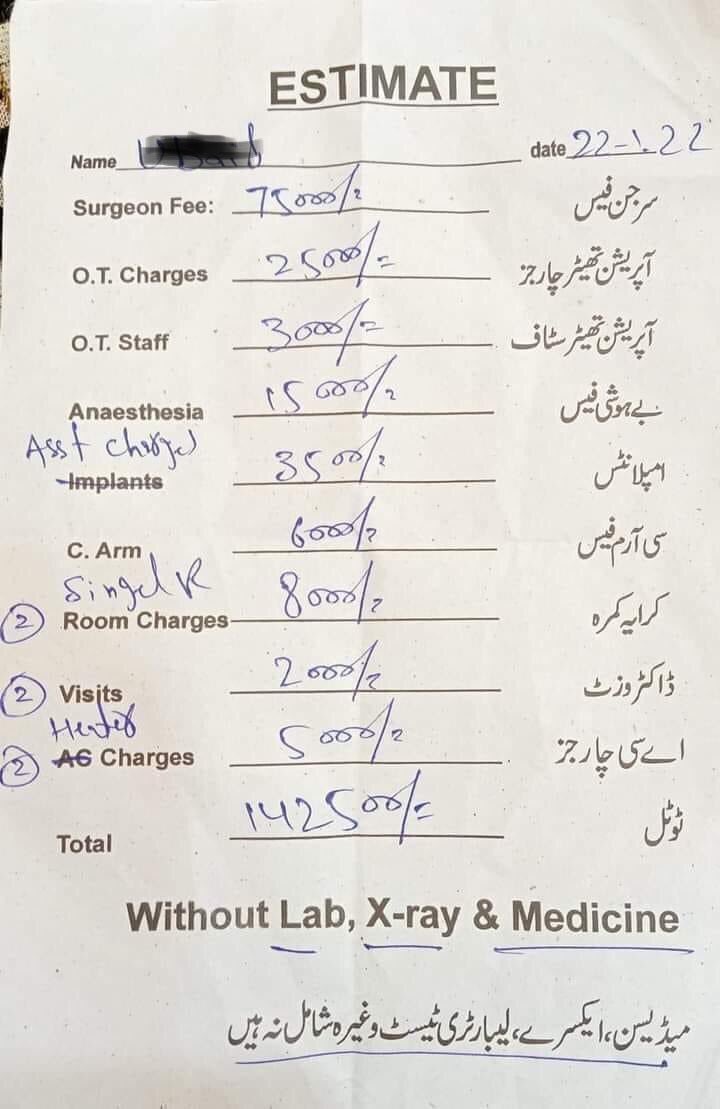 ESTIMATE
Name date 22-1.22
Surgeon Fee: 75000/= سرجن فیس
O.T. Charges 25000/= آپریشن تھیٹر چارجز
O.T. Staff 3000/= آپریشن تھیٹر سٹاف
Anaesthesia 15000/= بے ہوشی فیس
Asst Charges
Implants 3500/= امپلانٹس
C. Arm 6000/= سی آرم فیس
Singel R
2 Room Charges 8000/= کرایہ کمرہ
2 Visits 2000/= ڈاکٹر وزٹ
Heater
2 AC Charges 5000/= اے سی چارجز
Total 142500/= ٹوٹل
Without Lab, X-ray & Medicine
میڈیسن، ایکسرے، لیبارٹری ٹیسٹ وغیرہ شامل نہ ہیں